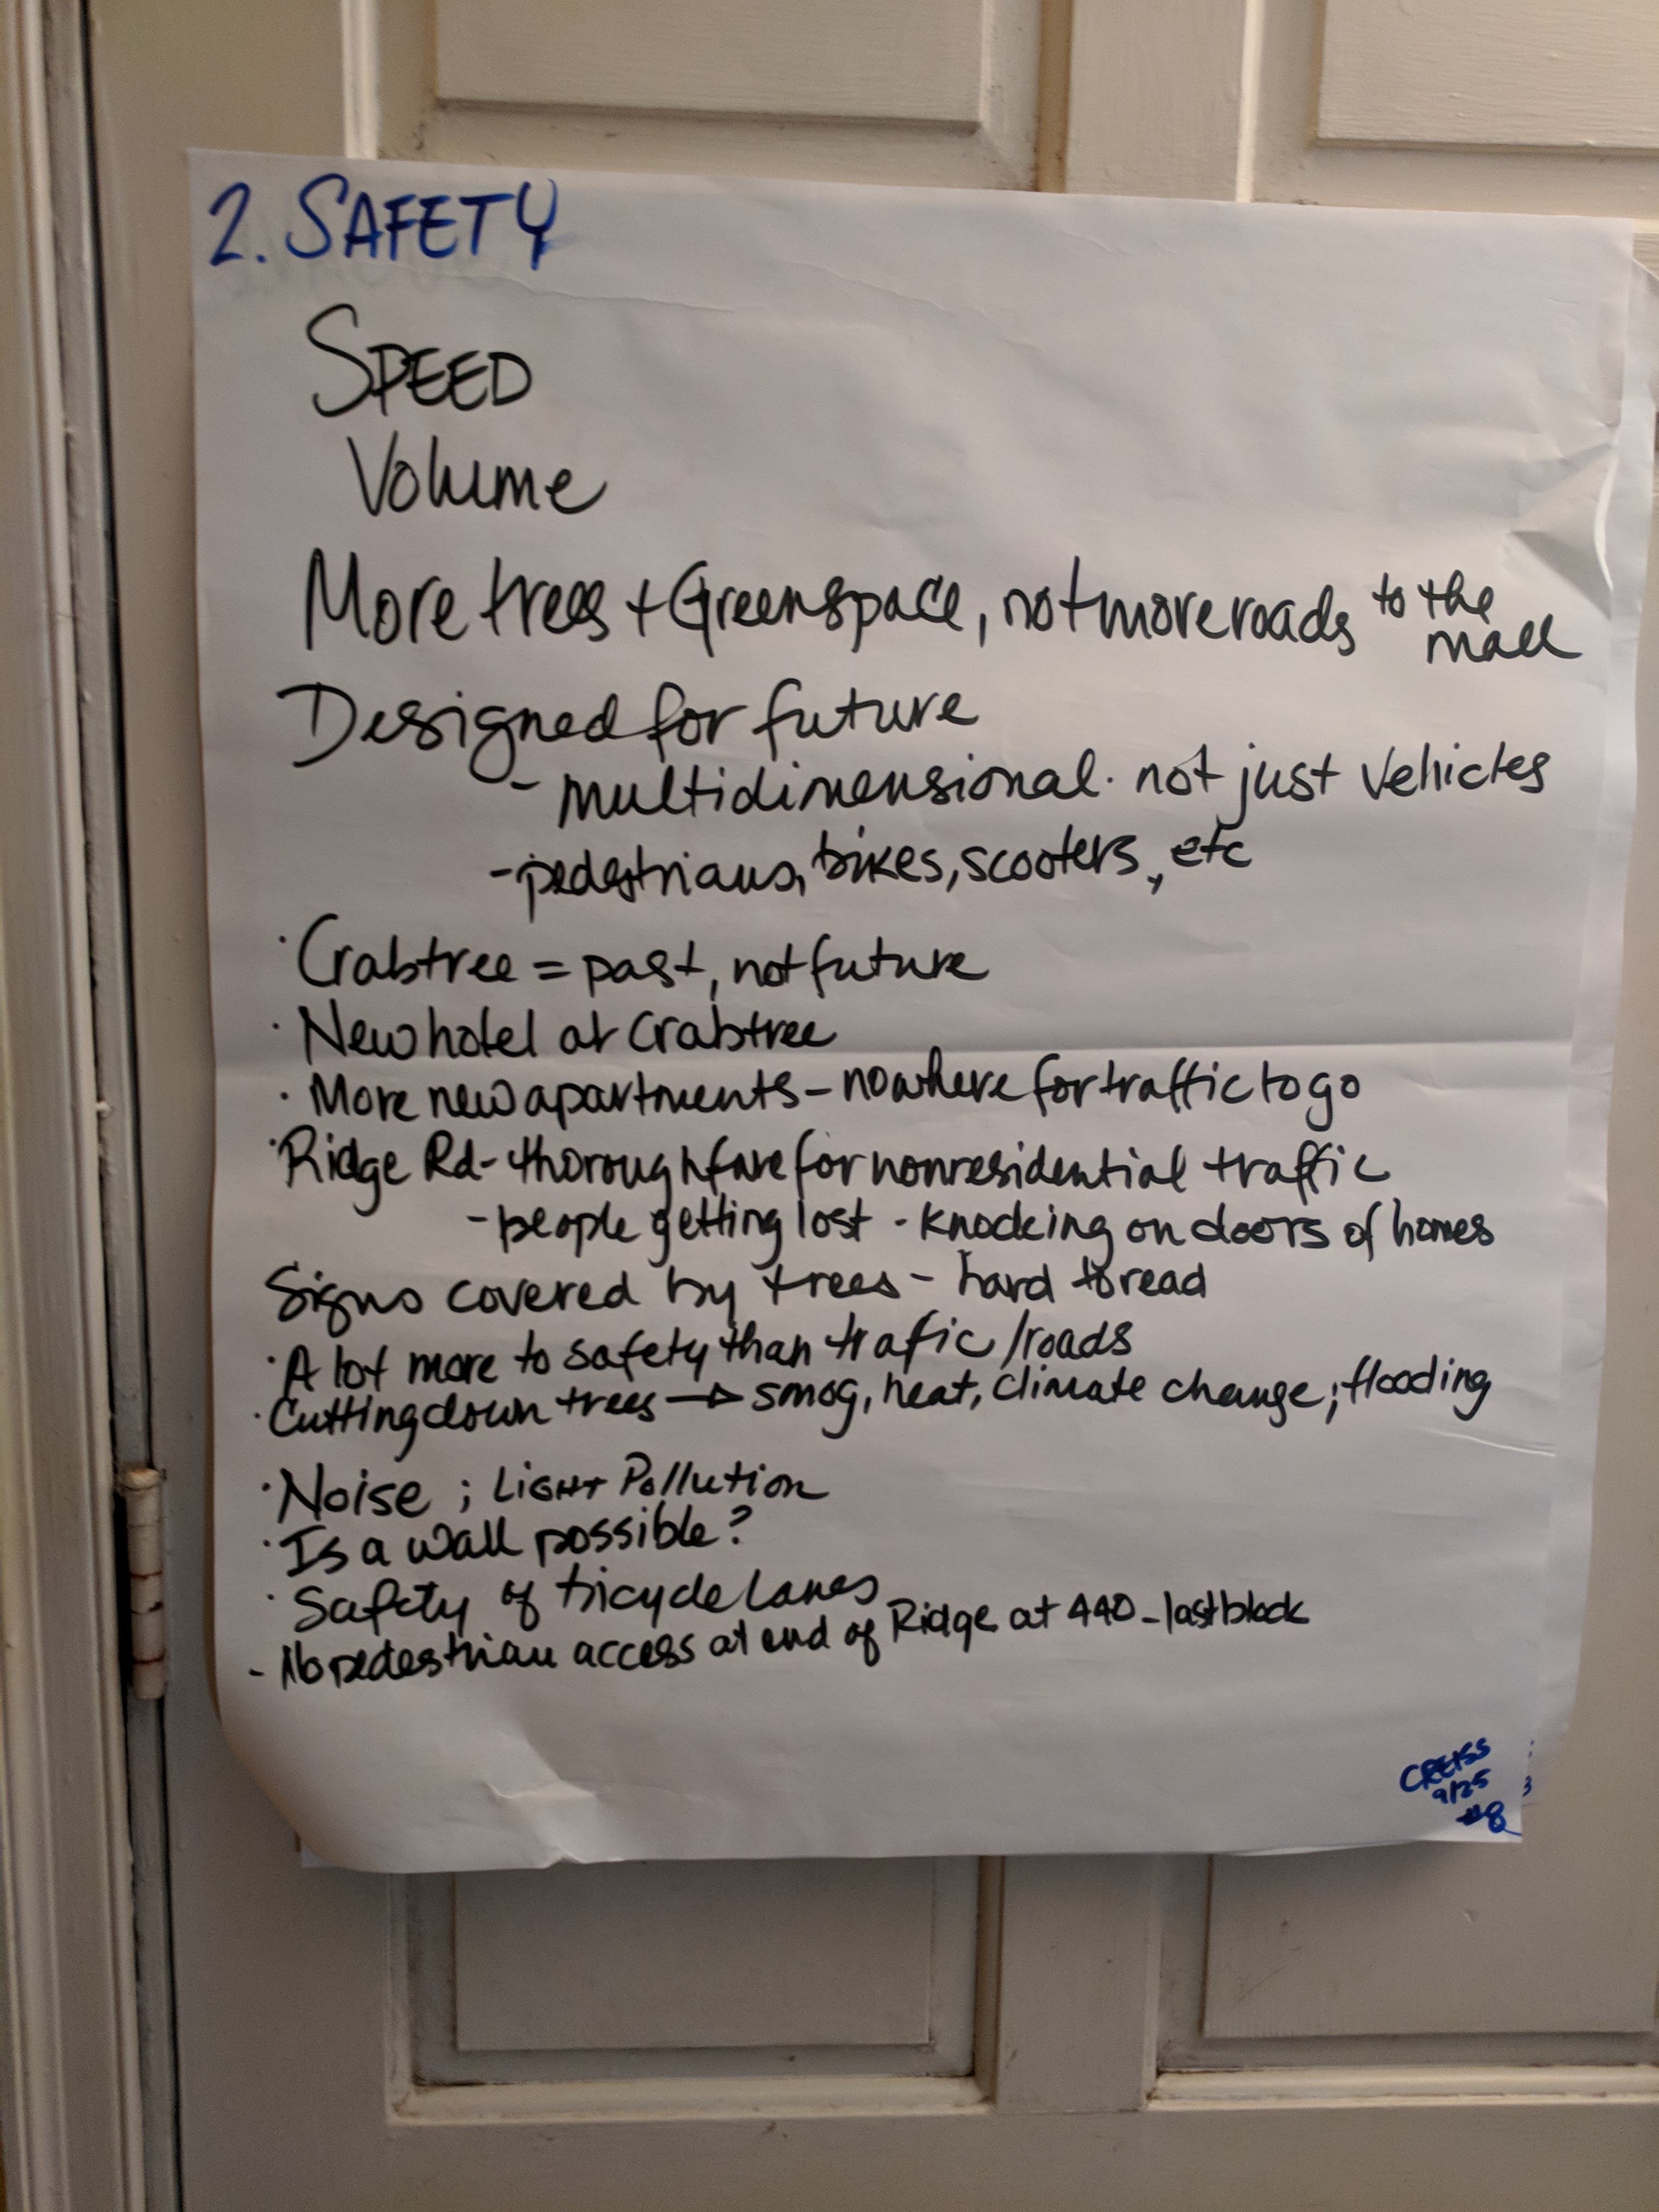 2. SAFETY
SPEED
Volume
More trees + Greenspace, not more roads to the mall
Designed for future
- multidimensional. not just vehicles
- pedestrians, bikes, scooters, etc
· Crabtree = past, not future
· New hotel at Crabtree
· More new apartments - nowhere for traffic to go
· Ridge Rd - thoroughfare for nonresidential traffic
- people getting lost - knocking on doors of homes
Signs covered by trees - hard to read
· A lot more to safety than trafic/roads
· Cutting down trees → smog, heat, climate change; flooding
· Noise ; Light Pollution
· Is a wall possible?
· Safety of bicycle lanes
- No pedestrian access at end of Ridge at 440 - last block
9/25
#8